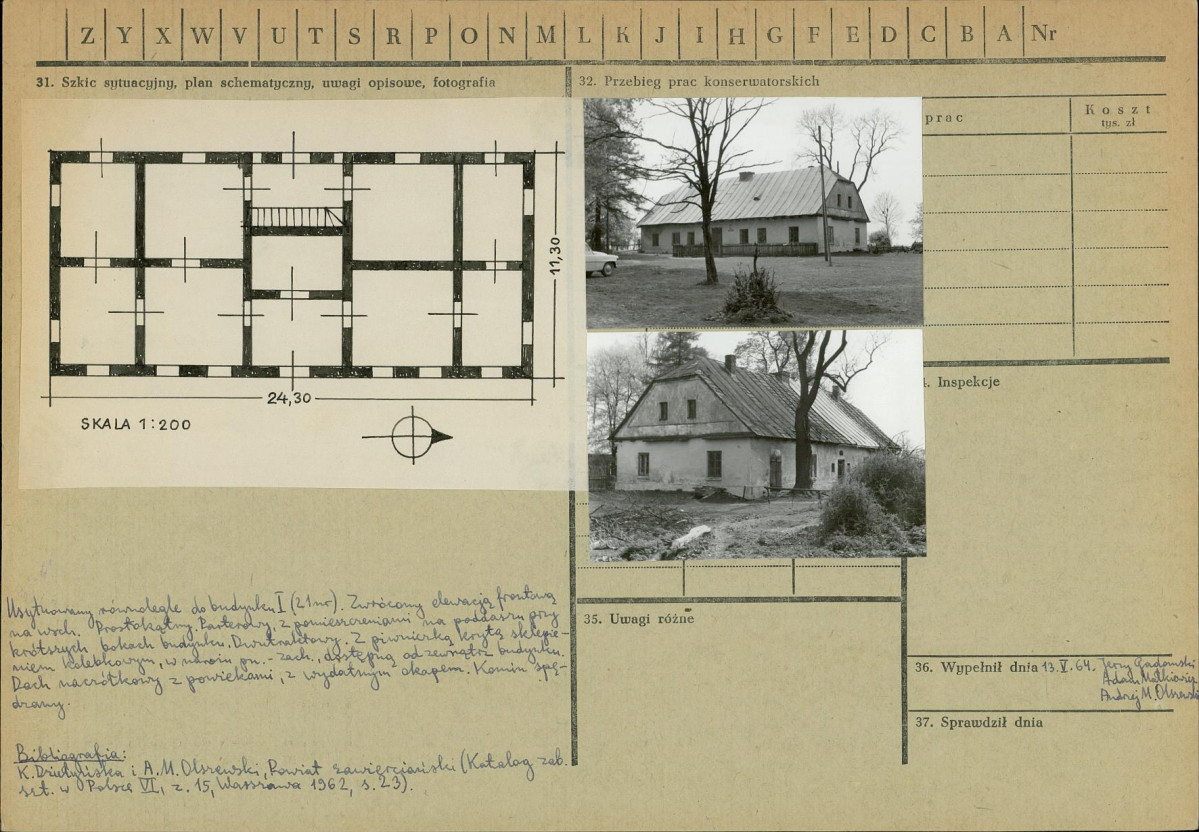 Z Y X W V U T S R P O N M L K J I H G F E D C B A Nr
31. Szkic sytuacyjny, plan schematyczny, uwagi opisowe, fotografia
32. Przebieg prac konserwatorskich
prac
Koszt
tys. zł
11,30
24,30
SKALA 1:200
. Inspekcje
Usytuowany równolegle do budynku I (21nr). Zwrócony elewacją frontową
na wsch. Prostokątny. Parterowy, z pomieszczeniami na poddaszu przy
krótszych bokach budynku. Dwutraktowy. Z piwniczką krytą sklepie-
niem kolebkowym, w narożu pn.-zach., dostępną od zewnątrz budynku.
Dach naczółkowy z powiekami, z wydatnym okapem. Komin spę-
drany.
Bibliografia:
K. i A. M. Olszewski, Powiat zawierciański (Katalog zab.
szt. w Polsce VI, z. 15, Warszawa 1962, s. 23).
35. Uwagi różne
36. Wypełnił dnia 13.V.64. Jerzy Gadomski
Adam Małkiewicz
Andrzej M. Olszewski
37. Sprawdził dnia